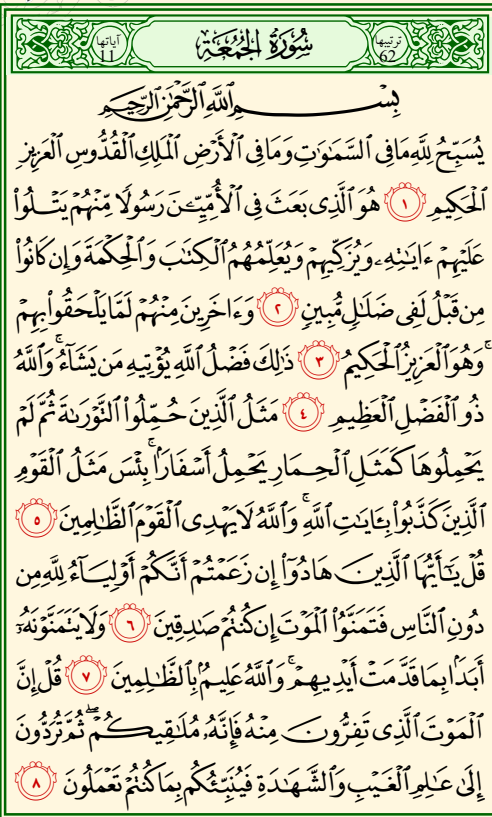 ترتيبها 62 سُورَةُ الجُمُعَةِ آياتها 11
بِسْمِ اللَّهِ الرَّحْمَٰنِ الرَّحِيمِ
يُسَبِّحُ لِلَّهِ مَا فِى ٱلسَّمَٰوَٰتِ وَمَا فِى ٱلْأَرْضِ ٱلْمَلِكِ ٱلْقُدُّوسِ ٱلْعَزِيزِ
ٱلْحَكِيمِ ١ هُوَ ٱلَّذِى بَعَثَ فِى ٱلْأُمِّيِّـۧنَ رَسُولًا مِّنْهُمْ يَتْلُوا۟
عَلَيْهِمْ ءَايَٰتِهِۦ وَيُزَكِّيهِمْ وَيُعَلِّمُهُمُ ٱلْكِتَٰبَ وَٱلْحِكْمَةَ وَإِن كَانُوا۟
مِن قَبْلُ لَفِى ضَلَٰلٍ مُّبِينٍ ٢ وَءَاخَرِينَ مِنْهُمْ لَمَّا يَلْحَقُوا۟ بِهِمْ
ۚ وَهُوَ ٱلْعَزِيزُ ٱلْحَكِيمُ ٣ ذَٰلِكَ فَضْلُ ٱللَّهِ يُؤْتِيهِ مَن يَشَآءُ ۚ وَٱللَّهُ
ذُو ٱلْفَضْلِ ٱلْعَظِيمِ ٤ مَثَلُ ٱلَّذِينَ حُمِّلُوا۟ ٱلتَّوْرَىٰةَ ثُمَّ لَمْ
يَحْمِلُوهَا كَمَثَلِ ٱلْحِمَارِ يَحْمِلُ أَسْفَارًۢا ۚ بِئْسَ مَثَلُ ٱلْقَوْمِ
ٱلَّذِينَ كَذَّبُوا۟ بِـَٔايَٰتِ ٱللَّهِ ۚ وَٱللَّهُ لَا يَهْدِى ٱلْقَوْمَ ٱلظَّٰلِمِينَ ٥
قُلْ يَٰٓأَيُّهَا ٱلَّذِينَ هَادُوٓا۟ إِن زَعَمْتُمْ أَنَّكُمْ أَوْلِيَآءُ لِلَّهِ مِن
دُونِ ٱلنَّاسِ فَتَمَنَّوُا۟ ٱلْمَوْتَ إِن كُنتُمْ صَٰدِقِينَ ٦ وَلَا يَتَمَنَّوْنَهُۥٓ
أَبَدًۢا بِمَا قَدَّمَتْ أَيْدِيهِمْ ۚ وَٱللَّهُ عَلِيمٌۢ بِٱلظَّٰلِمِينَ ٧ قُلْ إِنَّ
ٱلْمَوْتَ ٱلَّذِى تَفِرُّونَ مِنْهُ فَإِنَّهُۥ مُلَٰقِيكُمْ ۖ ثُمَّ تُرَدُّونَ
إِلَىٰ عَٰلِمِ ٱلْغَيْبِ وَٱلشَّهَٰدَةِ فَيُنَبِّئُكُم بِمَا كُنتُمْ تَعْمَلُونَ ٨